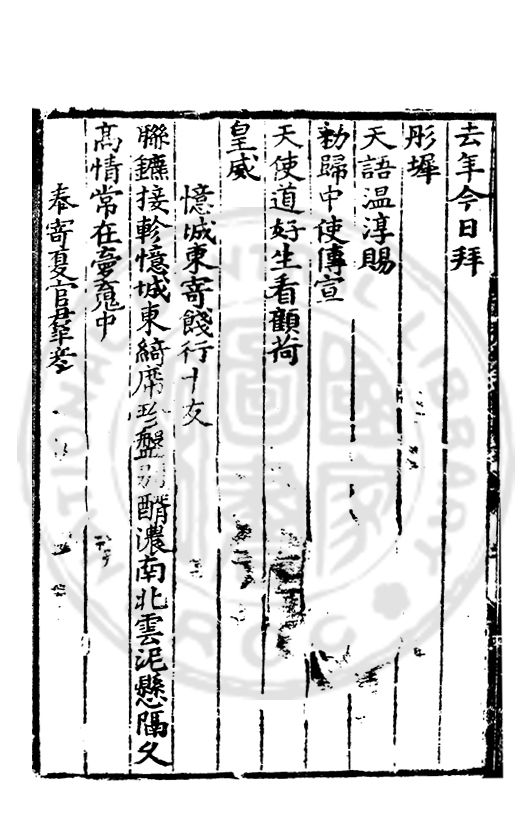 去年今日拜
彤墀
天語温淳賜
勅歸中使傳宣
天使道好生看顧荷
皇威
憶城東寄餞行十友
聯鑣接軫憶城東綺席珍盤別酳濃南北雲泥懸隔久
髙情常在夢䰟中
奉寄夏官羣彦